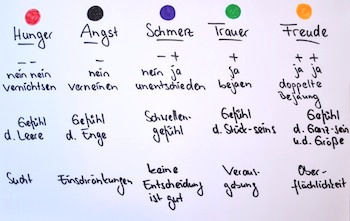 Hunger Angst Schmerz Trauer Freude
− − − − + + + +
nein nein nein ja ja ja ja
vernichten verneinen unentschieden bejaen doppelte
Bejaung
Gefühl Gefühl Schwellen- Gefühl Gefühl
d. Leere d. Enge gefühl d. Stück-seins d. Ganz-sein
u.d. Größe
Sucht Einschränkungen keine Veraus- Ober-
Entscheidung gabung flächlichkeit
ist gut